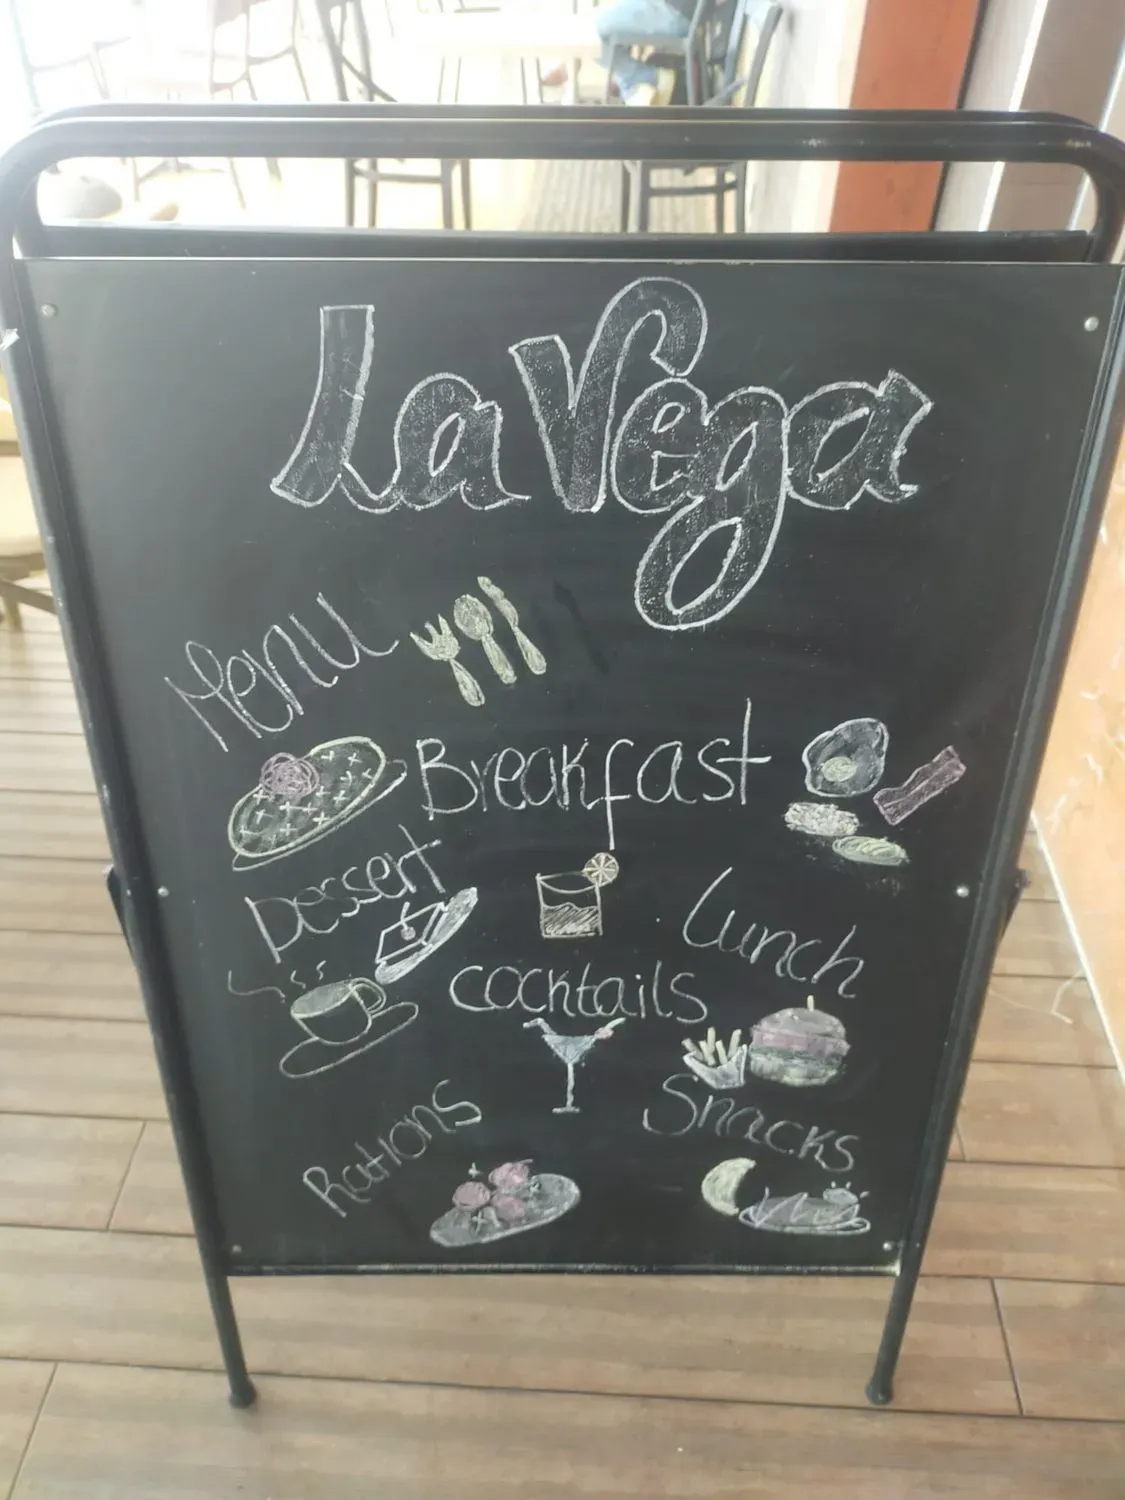 La Vega
Menu
Breakfast
Dessert
Lunch
cocktails
Rations
Snacks